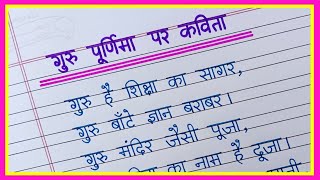 गुरु पूर्णिमा पर कविता
गुरु है शिक्षा का सागर,
गुरु बाँटे ज्ञान बराबर।
गुरु मंदिर जैसी पूजा,
का नाम है दूजा।